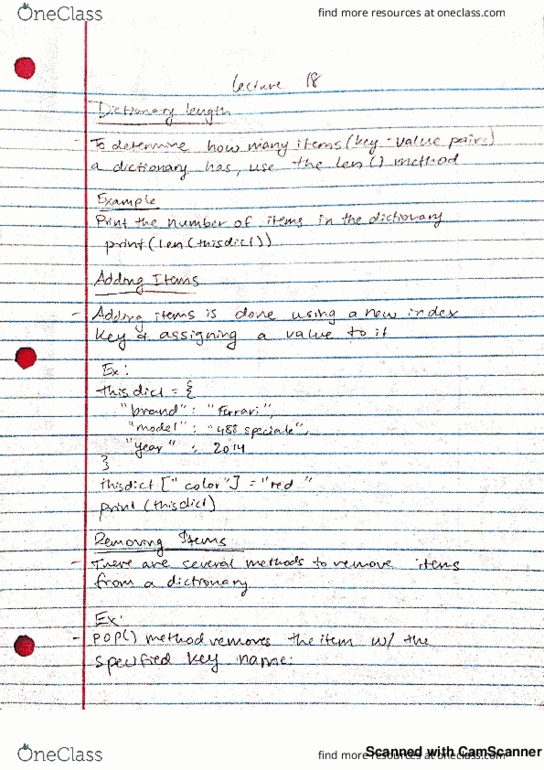 OneClass
find more resources at oneclass.com
Lecture 18
Dictionary length
- To determine how many items (key-value pairs)
a dictionary has, use the len() method
Example
Print the number of items in the dictionary
print(len(thisdict))
Adding Items
- Adding items is done using a new index
key & assigning a value to it
Ex:
thisdict = {
"brand": "Ferrari",
"model": "488 speciale",
"year" : 2014
}
thisdict ["color"] = "red"
print (thisdict)
Removing Items
- There are several methods to remove items
from a dictionary
Ex:
- POP() method removes the item w/ the
specified key name:
OneClass
find more resources at oneclass.com
Scanned with CamScanner